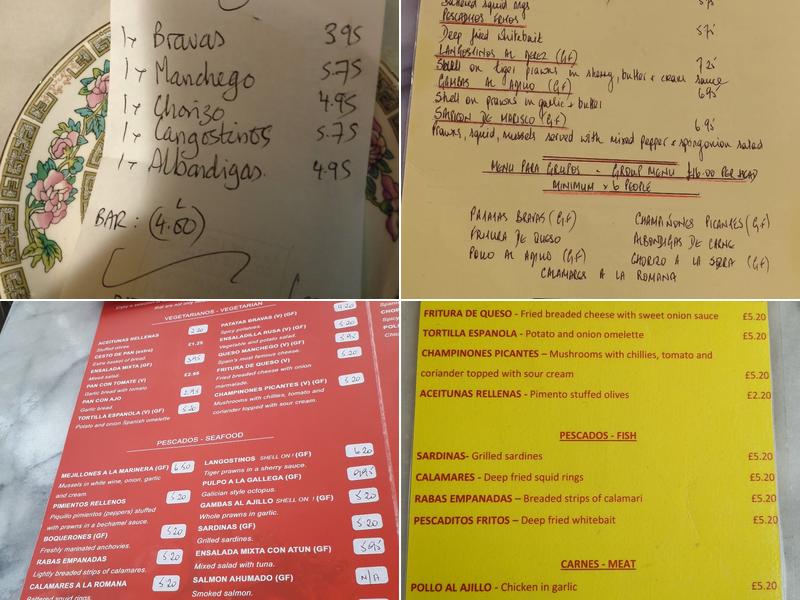 1x Bravas 3.95
1x Manchego 5.75
1x Chorizo 4.95
1x Langostinos 5.75
1x Albandigas. 4.95
BAR: (4.60)
Battered squid rings 5.75
PESCADITOS FRITOS
Deep fried whitebait 5.75
LANGOSTINOS AL JEREZ (G.F)
Shell on tiger prawns in sherry, butter + cream sauce 7.25
GAMBAS AL AJILLO (G.F)
Shell on prawns in garlic + butter 6.95
SALPICON DE MARISCO (G.F) 6.95
Prawns, squid, mussels served with mixed pepper + spring onion salad
MENU PARA GRUPOS - GROUP MENU £16.00 PER HEAD
MINIMUM x 6 PEOPLE
PATATAS BRAVAS (G.F)
FRITURA DE QUESO
POLLO AL AJILLO (G.F)
CHAMPIÑONES PICANTES (G.F)
ALBONDIGAS DE CARNE
CHORIZO A LA SIDRA (G.F)
CALAMARES A LA ROMANA
that are not only
VEGETARIANOS - VEGETARIAN
ACEITUNAS RELLENAS 2.20
Stuffed olives.
CESTO DE PAN (extra) £1.25
Extra basket of bread.
ENSALADA MIXTA (GF) 3.95
Mixed salad.
PAN CON TOMATE (V) £2.95
Garlic bread with tomato.
PAN CON AJO 2.95
Garlic bread
TORTILLA ESPANOLA (V) (GF) 5.20
Potato and onion Spanish omelette
PATATAS BRAVAS (V) (GF)
Spicy potatoes.
ENSALADILLA RUSA (V) (GF) 5.20
Vegetable and potato salad.
QUESO MANCHEGO (V) (GF) 5.95
Spain's most famous cheese.
FRITURA DE QUESO (V) 5.20
Fried breaded cheese with onion
marmalade.
CHAMPIÑONES PICANTES (V) (GF) 5.20
Mushrooms with chillies, tomato and
coriander topped with sour cream.
PESCADOS - SEAFOOD
MEJILLONES A LA MARINERA (GF) 6.50
Mussels in white wine, onion, garlic
and cream.
PIMIENTOS RELLENOS 5.20
Piquillo pimientos (peppers) stuffed
with prawns in a bechamel sauce.
BOQUERONES (GF) 5.20
Freshly marinated anchovies.
RABAS EMPANADAS 5.20
Lightly breaded strips of calamares.
CALAMARES A LA ROMANA 5.20
Battered squid rings.
LANGOSTINOS SHELL ON! (GF) 6.20
Tiger prawns in a sherry sauce.
PULPO A LA GALLEGA (GF)
Galician style octopus.
GAMBAS AL AJILLO SHELL ON! (GF) 5.95
Whole prawns in garlic.
SARDINAS (GF) 5.20
Grilled sardines.
ENSALADA MIXTA CON ATUN (GF) 5.95
Mixed salad with tuna.
SALMON AHUMADO (GF) N/A
Smoked salmon.
FRITURA DE QUESO - Fried breaded cheese with sweet onion sauce £5.20
TORTILLA ESPANOLA - Potato and onion omelette £5.20
CHAMPINONES PICANTES – Mushrooms with chillies, tomato and
coriander topped with sour cream £5.20
ACEITUNAS RELLENAS - Pimento stuffed olives £2.20
PESCADOS - FISH
SARDINAS- Grilled sardines £5.20
CALAMARES - Deep fried squid rings £5.20
RABAS EMPANADAS – Breaded strips of calamari £5.20
PESCADITOS FRITOS – Deep fried whitebait £5.20
CARNES - MEAT
POLLO AL AJILLO - Chicken in garlic £5.20